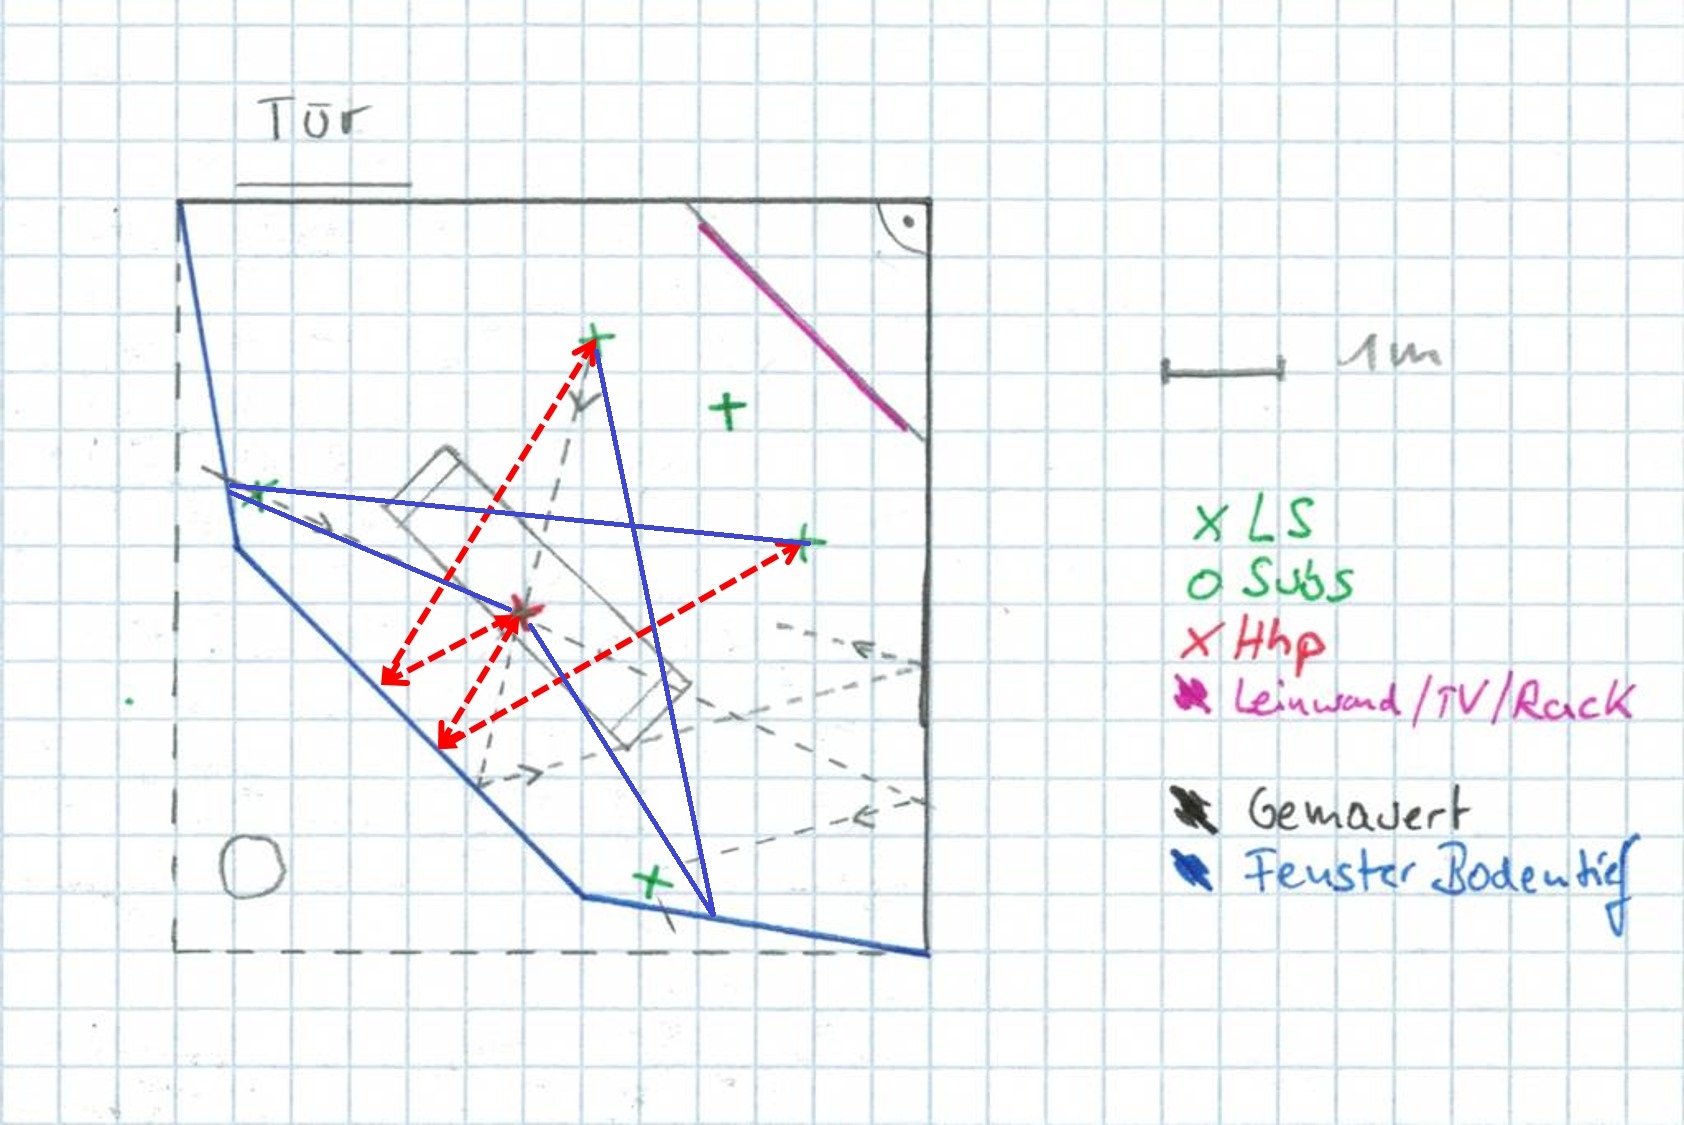 Tür
1m
X LS
O Subs
X Hhp
Leinwand/TV/Rack
Gemauert
Fenster Bodentief